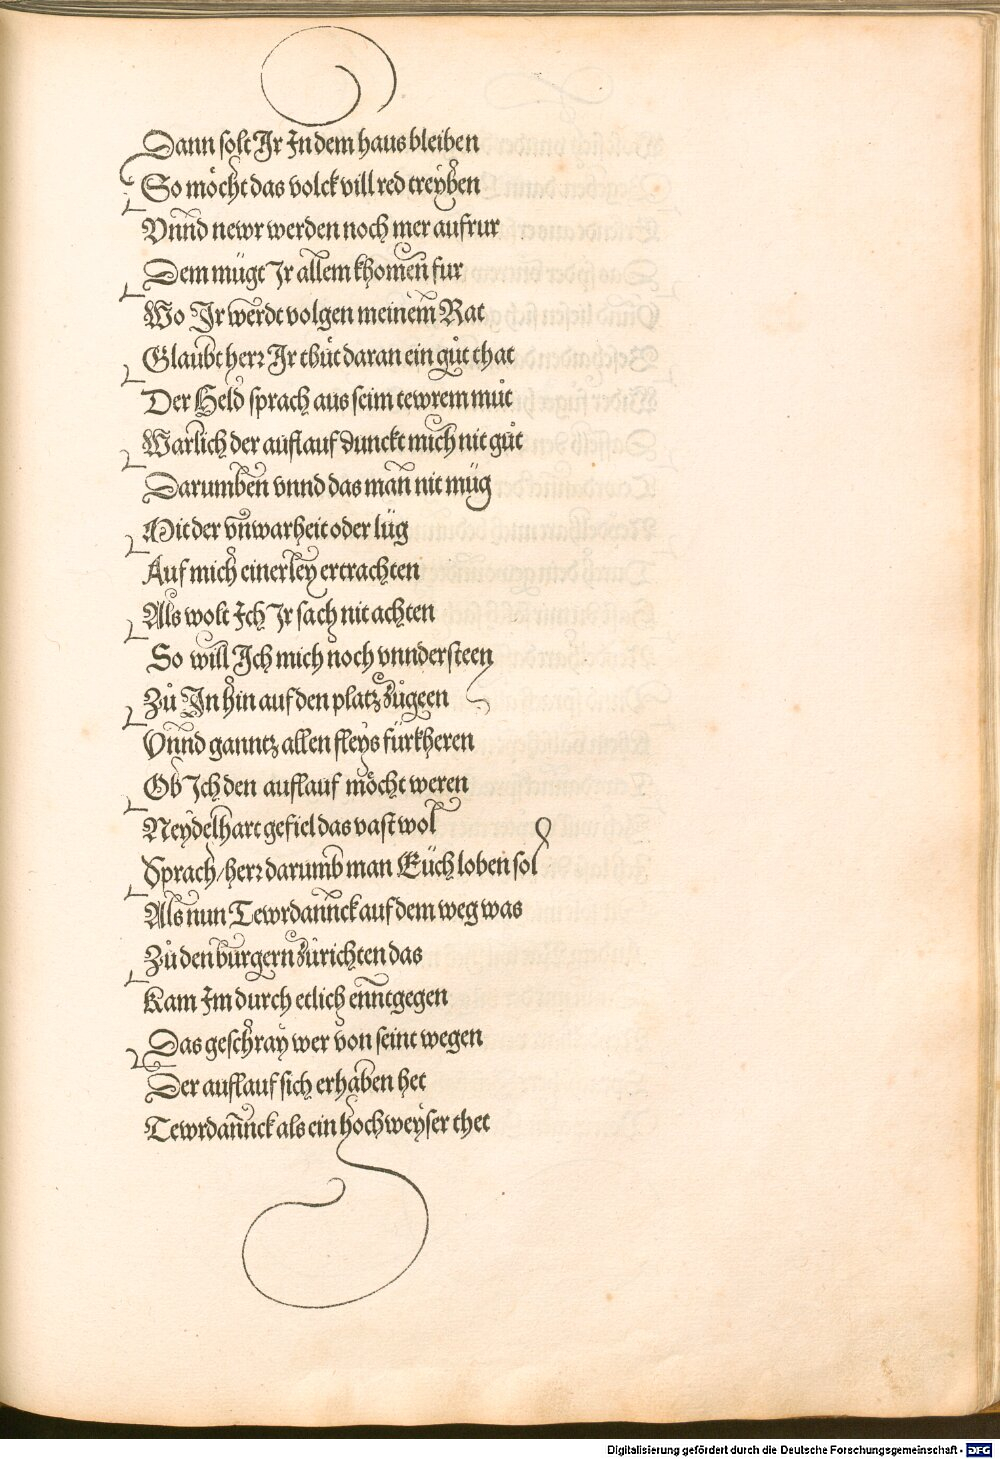 Dann solt Ir In dem haus bleiben
So möcht das volck vill red treyben
Vnnd newr werden noch mer aufrur
Dem mügt Ir allem khomen fur
Wo Ir werdt volgen meinem Rat
Glaubt herr Ir thůt daran ein gůt that
Der Held sprach aus seim tewrem můt
Warlich der auflauf dunckt mich nit gůt
Darumben vnnd das man nit müg
Mit der vnwarheit oder lüg
Auf mich einerley ertrachten
Als wolt Ich Ir sach nit achten
So will Ich mich noch vnndersteen
Zů In hin auf den platz zůgeen
Vnnd ganntz allen fleys fürkheren
Ob Ich den auflauf möcht weren
Neydelhart gefiel das vast wol
Sprach / herr darumb man Eüch loben sol
Als nun Tewrdannck auf dem weg was
Zů den burgern zůrichten das
Kam Im durch etlich enntgegen
Das geschray wer von seint wegen
Der auflauf sich erhaben het
Tewrdannck als ein hochweyser thet
Digitalisierung gefördert durch die Deutsche Forschungsgemeinschaft - DFG